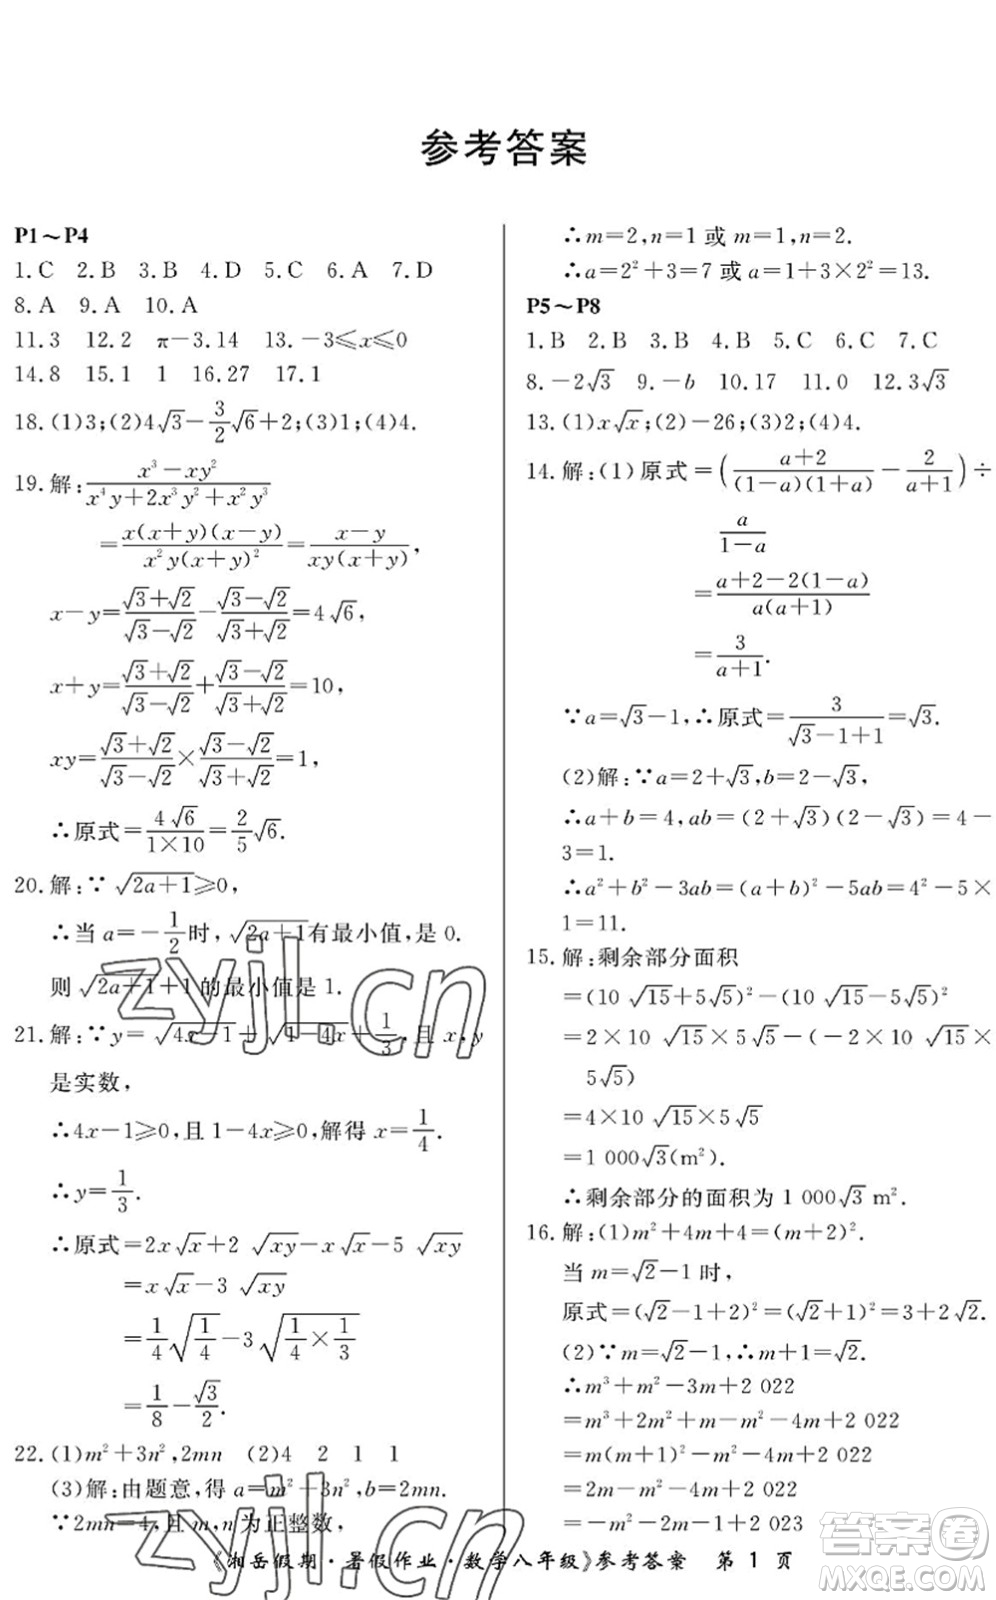 参考答案
P1～P4
1.C 2.B 3.B 4.D 5.C 6.A 7.D
8.A 9.A 10.A
11.3 12.2 π-3.14 13.-3≤x≤0
14.8 15.1 1 16.27 17.1
18.(1)3;(2)4√3-3/2√6+2;(3)1;(4)4.
19.解:(x³-xy²)/(x⁴y+2x³y²+x²y³)
=x(x+y)(x-y)/x²y(x+y)²=(x-y)/xy(x+y),
x-y=(√3+√2)/(√3-√2)-(√3-√2)/(√3+√2)=4√6,
x+y=(√3+√2)/(√3-√2)+(√3-√2)/(√3+√2)=10,
xy=(√3+√2)/(√3-√2)×(√3-√2)/(√3+√2)=1,
∴原式=4√6/(1×10)=2/5√6.
20.解:∵√(2a+1)≥0,
∴当a=-1/2时,√(2a+1)有最小值,是0.
则√(2a+1)+1的最小值是1.
21.解:∵y=√(4x-1)+√(1-4x)+1/3,且x,y
是实数,
∴4x-1≥0,且1-4x≥0,解得x=1/4.
∴y=1/3.
∴原式=2x√x+2√(xy)-x√x-5√(xy)
=x√x-3√(xy)
=1/4√(1/4)-3√(1/4×1/3)
=1/8-√3/2.
22.(1)m²+3n²,2mn (2)4 2 1 1
(3)解:由题意,得a=m²+3n²,b=2mn.
∵2mn=4,且m,n为正整数,
∴m=2,n=1或m=1,n=2.
∴a=2²+3=7或a=1+3×2²=13.
P5～P8
1.B 2.B 3.B 4.B 5.C 6.C 7.C
8.-2√3 9.-b 10.17 11.0 12.3√3
13.(1)x√x;(2)-26;(3)2;(4)4.
14.解:(1)原式=((a+2)/(1-a)(1+a)-2/(a+1))÷
a/(1-a)
=(a+2-2(1-a))/a(a+1)
=3/(a+1).
∵a=√3-1,∴原式=3/(√3-1+1)=√3.
(2)解:∵a=2+√3,b=2-√3,
∴a+b=4,ab=(2+√3)(2-√3)=4-
3=1.
∴a²+b²-3ab=(a+b)²-5ab=4²-5×
1=11.
15.解:剩余部分面积
=(10√15+5√5)²-(10√15-5√5)²
=2×10√15×5√5-(-2×10√15×
5√5)
=4×10√15×5√5
=1 000√3(m²).
∴剩余部分的面积为1 000√3 m².
16.解:(1)m²+4m+4=(m+2)².
当m=√2-1时,
原式=(√2-1+2)²=(√2+1)²=3+2√2.
(2)∵m=√2-1,∴m+1=√2.
∴m³+m²-3m+2 022
=m³+2m²+m-m²-4m+2 022
=m(m+1)²-m²-4m+2 022
=2m-m²-4m+2 022
=-m²-2m-1+2 023
《湘岳假期·暑假作业·数学八年级》参考答案 第 1 页
zyjl.cn
zyjl.cn
答案圈
MXQE.COM